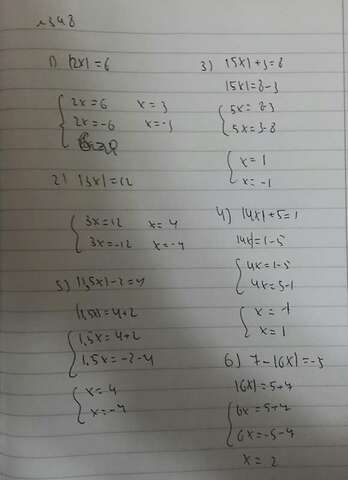 №348
1) |2x|=6
{ 2x=6 x=3
2x=-6 x=-3
2) |3x|=12
{ 3x=12 x=4
3x=-12 x=-4
5) |1,5x|-2=4
|1,5x|=4+2
{ 1,5x=4+2
1,5x=-2-4
{ x=4
x=-4
3) |5x|+3=8
|5x|=8-3
{ 5x=8-3
5x=3-8
{ x=1
x=-1
4) |4x|+5=1
|4x|=1-5
{ 4x=1-5
4x=5-1
{ x=-1
x=1
6) 7-|6x|=-5
|6x|=5+7
{ 6x=5+7
6x=-5-7
x=2